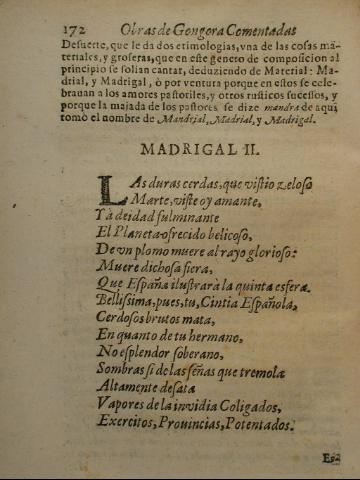 172 Obras de Gongora Comentadas
Desuerte, que le da dos etimologias, vna de las cosas ma-
teriales, y groseras, que en este genero de composicion al
principio se solian cantar, deduziendo de Material: Ma-
drial, y Madrigal, ò por ventura porque en estos se cele-
brauan a los amores pastoriles, y otros rusticos sucessos, y
porque la majada de los pastores se dize mandra de aqui
tomò el nombre de Mandrial, Madrial, y Madrigal.
MADRIGAL II.
LAs duras cerdas, que vistio zeloso
Marte, viste oy amante,
Ya deidad fulminante
El Planeta ofrecido belicoso,
De vn plomo muere al rayo glorioso:
Muere dichosa fiera,
Que España ilustrarà la quinta esfera.
Bellissima, pues, tu, Cintia Española,
Cerdosos brutos mata,
En quanto de tu hermano,
No esplendor soberano,
Sombras si de las señas que tremola
Altamente desata
Vapores de la invidia Coligados,
Exercitos, Prouincias, Potentados.